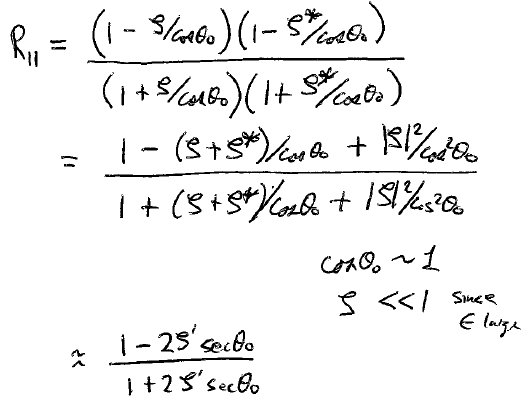 R_{||} = \frac{(1 - ζ/cosθ₀)(1 - ζ*/cosθ₀)}{(1 + ζ/cosθ₀)(1 + ζ*/cosθ₀)}
= \frac{1 - (ζ + ζ*)/cosθ₀ + |ζ|²/cos²θ₀}{1 + (ζ + ζ*)/cosθ₀ + |ζ|²/cos²θ₀}
cosθ₀ ~ 1
ζ << 1 since
ϵ large
≈ \frac{1 - 2ζ' secθ₀}{1 + 2ζ' secθ₀}